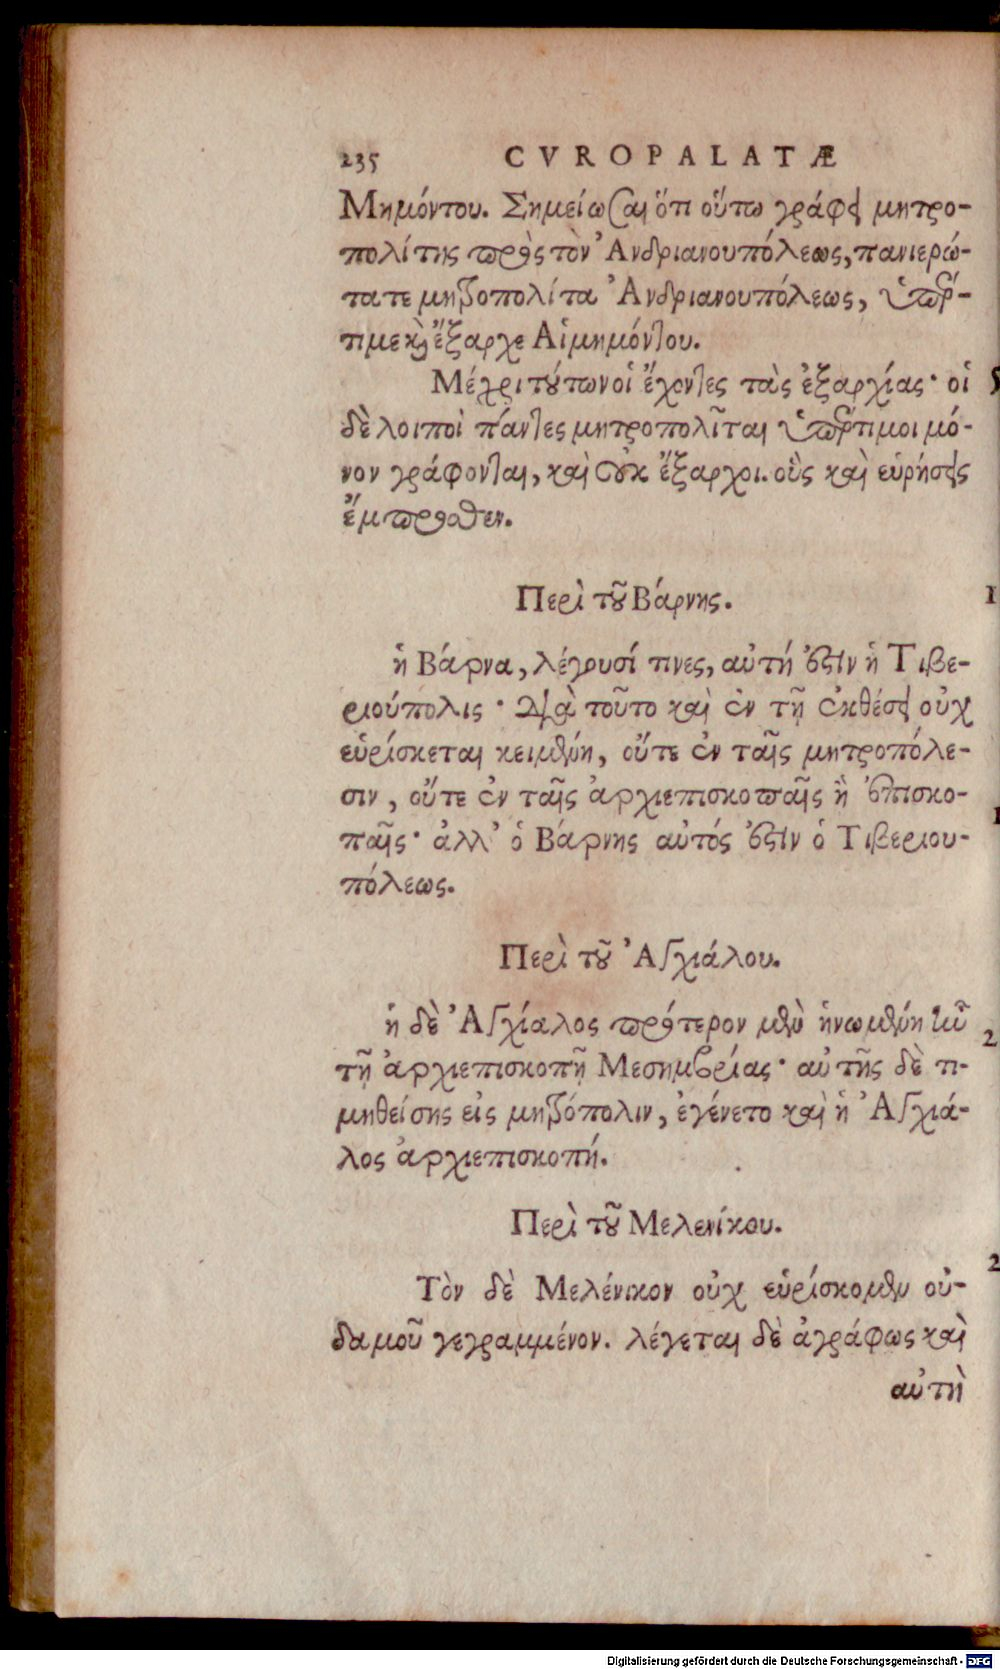 235 CVROPALATÆ
Μημόντου. Σημείωσαι ὅτι οὕτω γράφει μητρο-
πολίτης πρὸς τὸν Ἀνδριανουπόλεως, πανιερώ-
τατε μητροπολίτα Ἀνδριανουπόλεως, ὑπέρ-
τιμε καὶ ἔξαρχε Αἱμημόντου.
Μέχρι τούτων οἱ ἔχοντες τὰς ἐξαρχίας· οἱ
δὲ λοιποὶ πάντες μητροπολῖται ὑπέρτιμοι μό-
νον γράφονται, καὶ οὐκ ἔξαρχοι. οὓς καὶ εὑρήσεις
ἔμπροσθεν.
Περὶ τοῦ Βάρνης.
ἡ Βάρνα, λέγουσί τινες, αὐτή ἐστιν ἡ Τιβε-
ριούπολις· διὰ τοῦτο καὶ ἐν τῇ ἐκθέσει οὐχ
εὑρίσκεται κειμένη, οὔτε ἐν ταῖς μητροπόλε-
σιν, οὔτε ἐν ταῖς ἀρχιεπισκοπαῖς ἢ ἐπισκο-
παῖς· ἀλλ' ὁ Βάρνης αὐτός ἐστιν ὁ Τιβεριου-
πόλεως.
Περὶ τοῦ Ἀγχιάλου.
ἡ δὲ Ἀγχίαλος πρότερον μὲν ἡνωμένη ἦν
τῇ ἀρχιεπισκοπῇ Μεσημβρίας· αὐτῆς δὲ τι-
μηθείσης εἰς μητρόπολιν, ἐγένετο καὶ ἡ Ἀγχιά-
λος ἀρχιεπισκοπή.
Περὶ τοῦ Μελενίκου.
Τὸν δὲ Μελένικον οὐχ εὑρίσκομεν οὐ-
δαμοῦ γεγραμμένον. λέγεται δὲ ἀγράφως καὶ
αὐτὴ
Digitalisierung gefördert durch die Deutsche Forschungsgemeinschaft - DFG